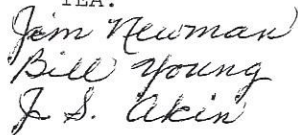 YEA:
Jim Newman
Bill Young
J. S. Akin